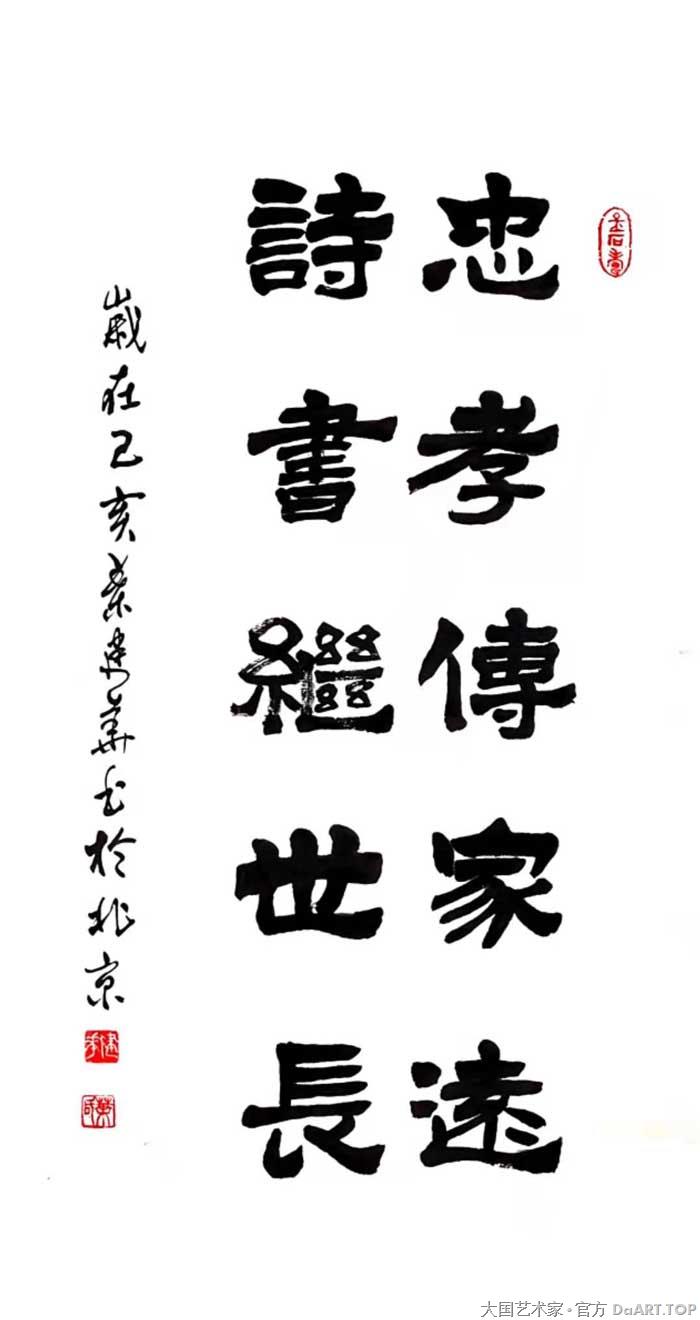 忠孝傳家遠
詩書繼世長
歲在己亥建華书於北京
大国艺术家·官方 DaART.TOP